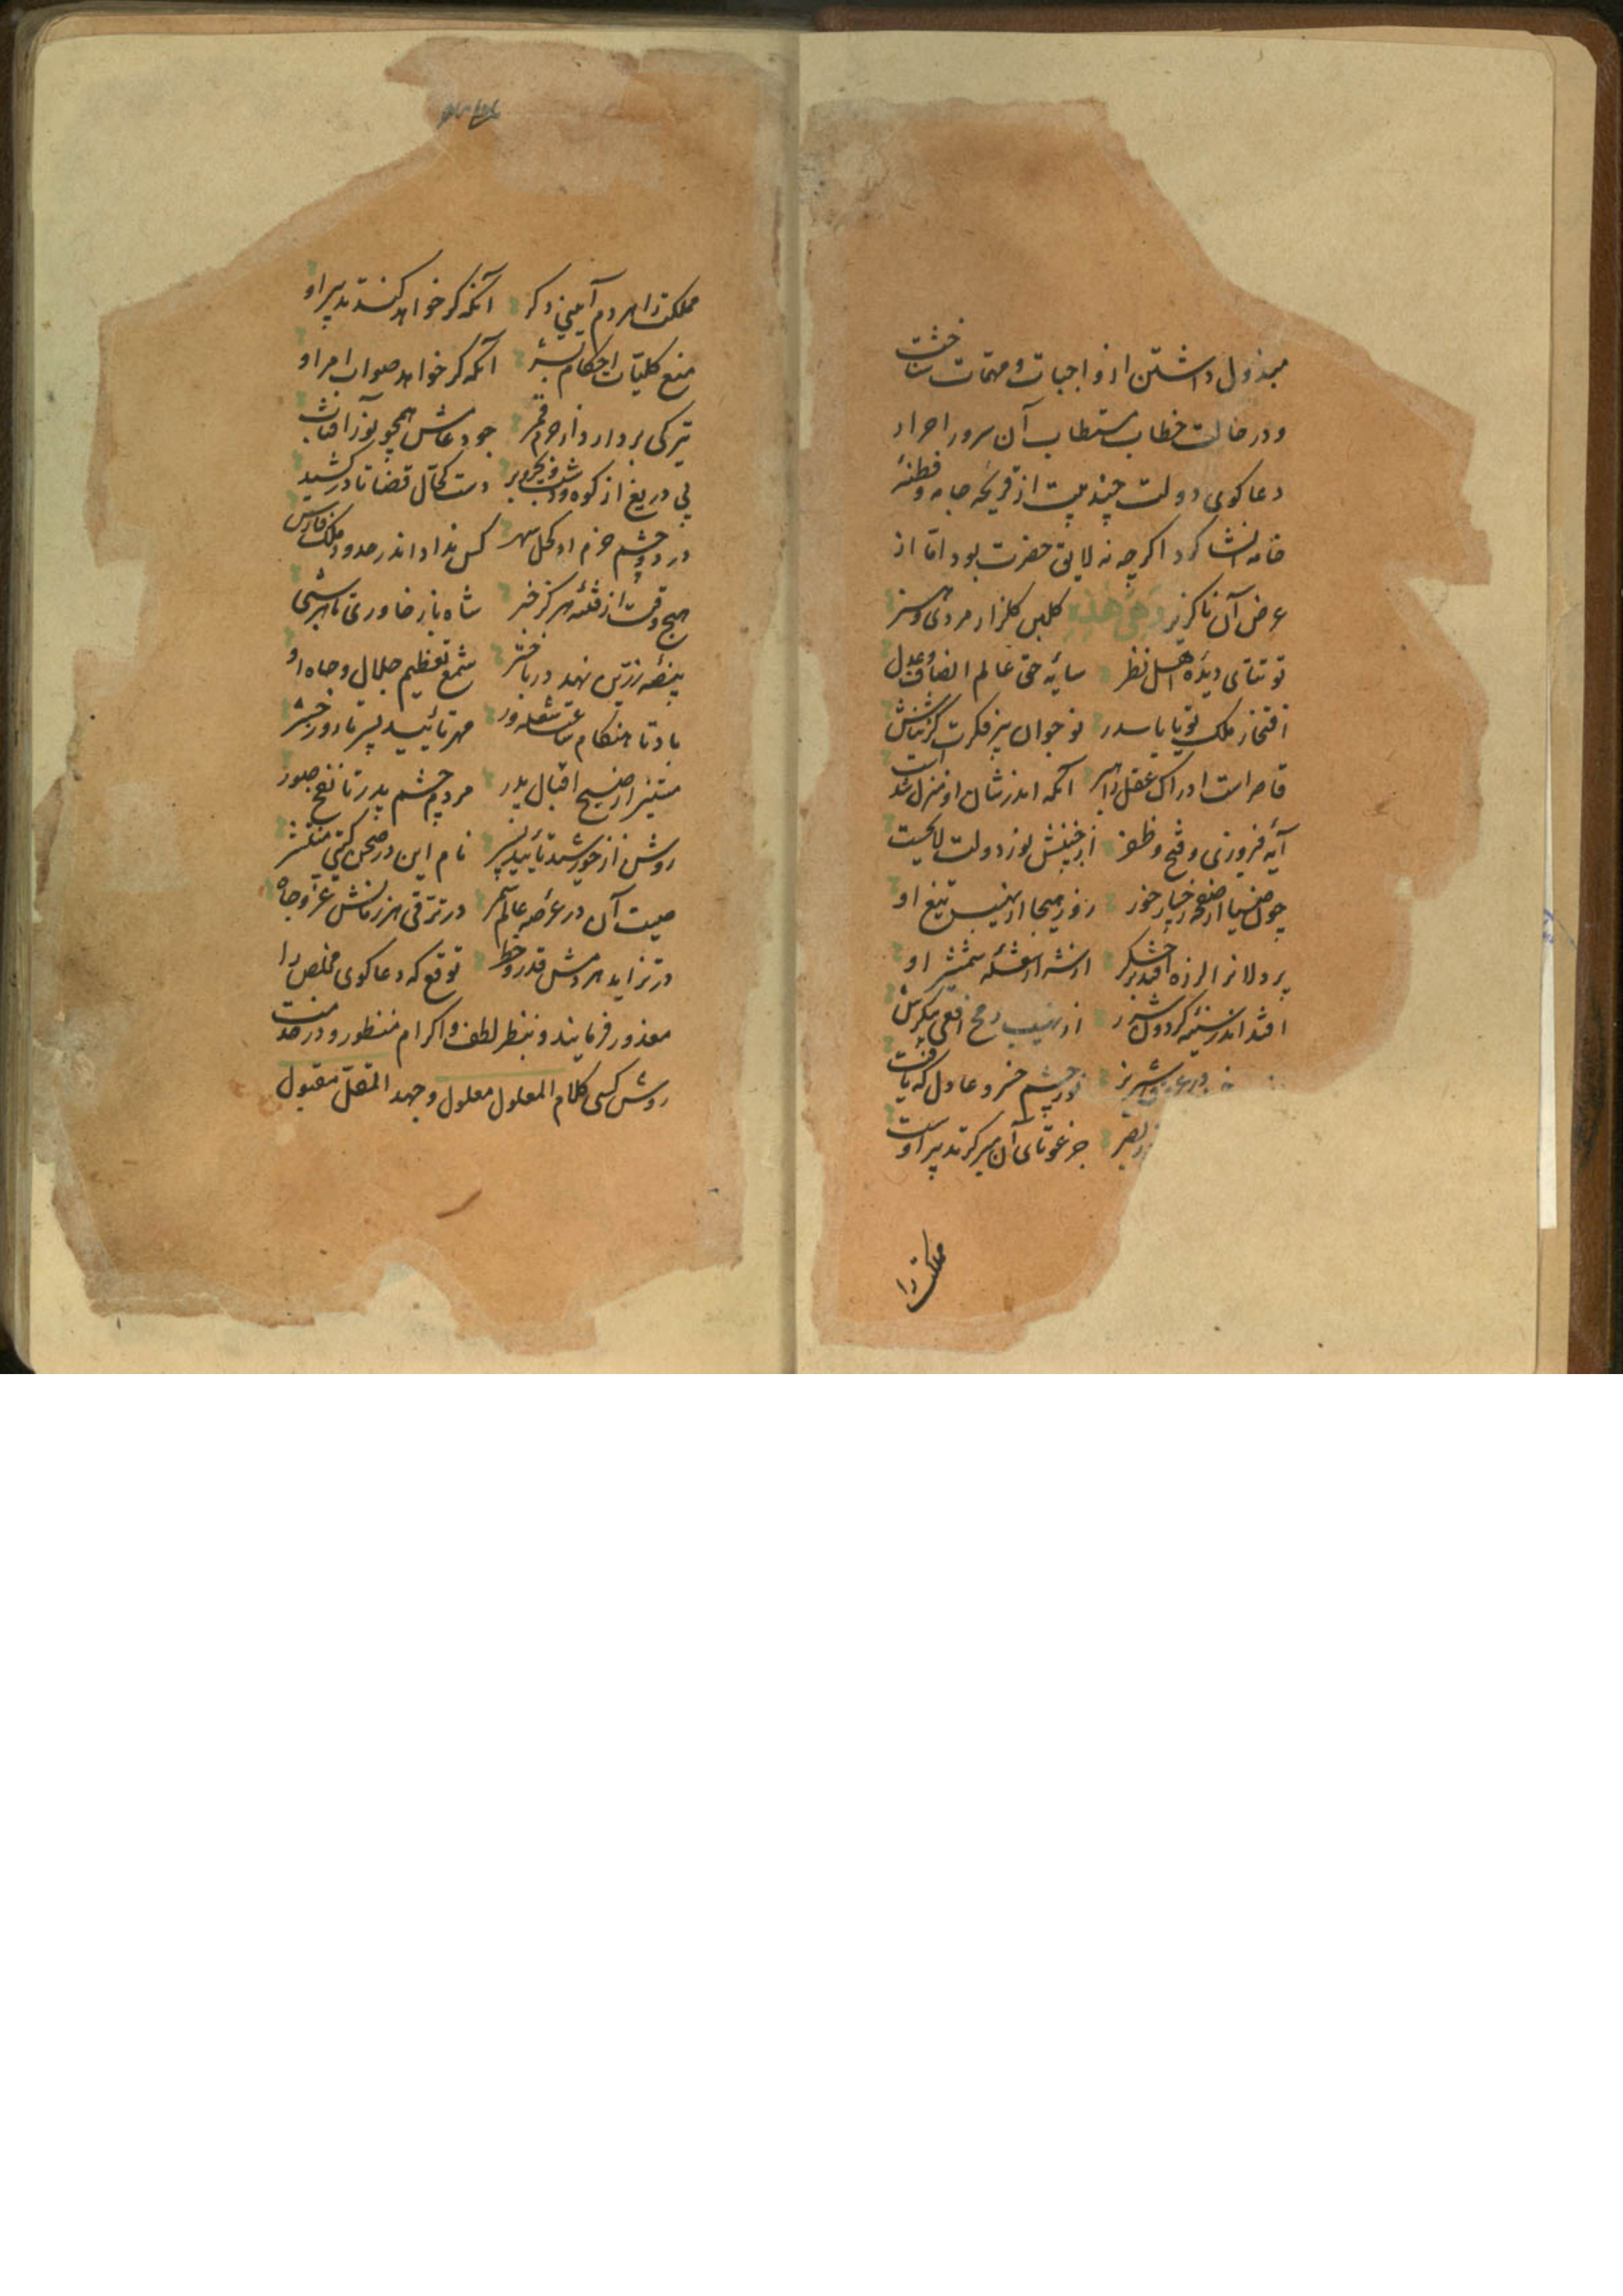 مبذول داشتن از واجبات و مهمات شناخت
و در خلالت خطاب مستطاب آن سرور احرار
دعاکوی دولت چند بیت از قریحه جامه و فطنه
خامه انشا کرد اکرچه نه لایق حضرت بود اما از
عرض آن ناکزیر وهی هذه کلبن کلزار مردی و هنر
توتیای دیده اهل نظر سایه حق عالم انصاف و عدل
افتخار ملک نوجوان پیر فکرت کز شانش
قاصر است ادراک عقل راهبر آنکه اندر شان او منزل شد است
آیه فیروزی و فتح و ظفر از جبینش نور دولت لایحست
چون ضیا از صفحه رخسار خور روز هیجا از نهیب تیغ او
پردلانرا لرزه افتد بر جکر از شعله شمشیر او
افتد اندر سینه کردون شرر از نهیب رمح افعی پیکرش
نور چشم خسرو عادل که یافت
جز غوتای آن میر کز تدبیر اوست
مملکت را
مملکت را هر دم آیینی دکر آنکه کر خواهد کند تدبیر او
منع کلیات احکام بشر آنکه کر خواهد صواب امر او
تیرکی بردارد از جرم قمر جود عامش همچو نور آفتاب
بی دریغ از کوه و دشت و بحر و بر دست کحال قضا تا در کشید
در دو چشم حزم او کحل سهر کس نداد اندر حدود ملک فارس
هیچ وقت از فتنه هرکز خبر شاه باز خاوری تا هر شبی
بیضه زرین نهد در باختر شمع تعظیم جلال و جاه او
باد تا هنکام شعله ور مهر تأیید پسر تا روز حشر
مستنیر از صبح اقبال پدر مردم چشم پدر تا نفخ صور
روشن از خورشید تأیید پسر نام این در صحن کیتی منتشر
صیت آن در عرصه عالم سمر در ترقی هر زمانش عز و جاه
در تزاید هر دمش قدر و خطر توقع که دعاکوی مخلص را
معذور فرمایند و بنظر لطف و اکرام منظور و در خدمت
روشن کسی کلام المعلول معلول و جهد المقل مقبول